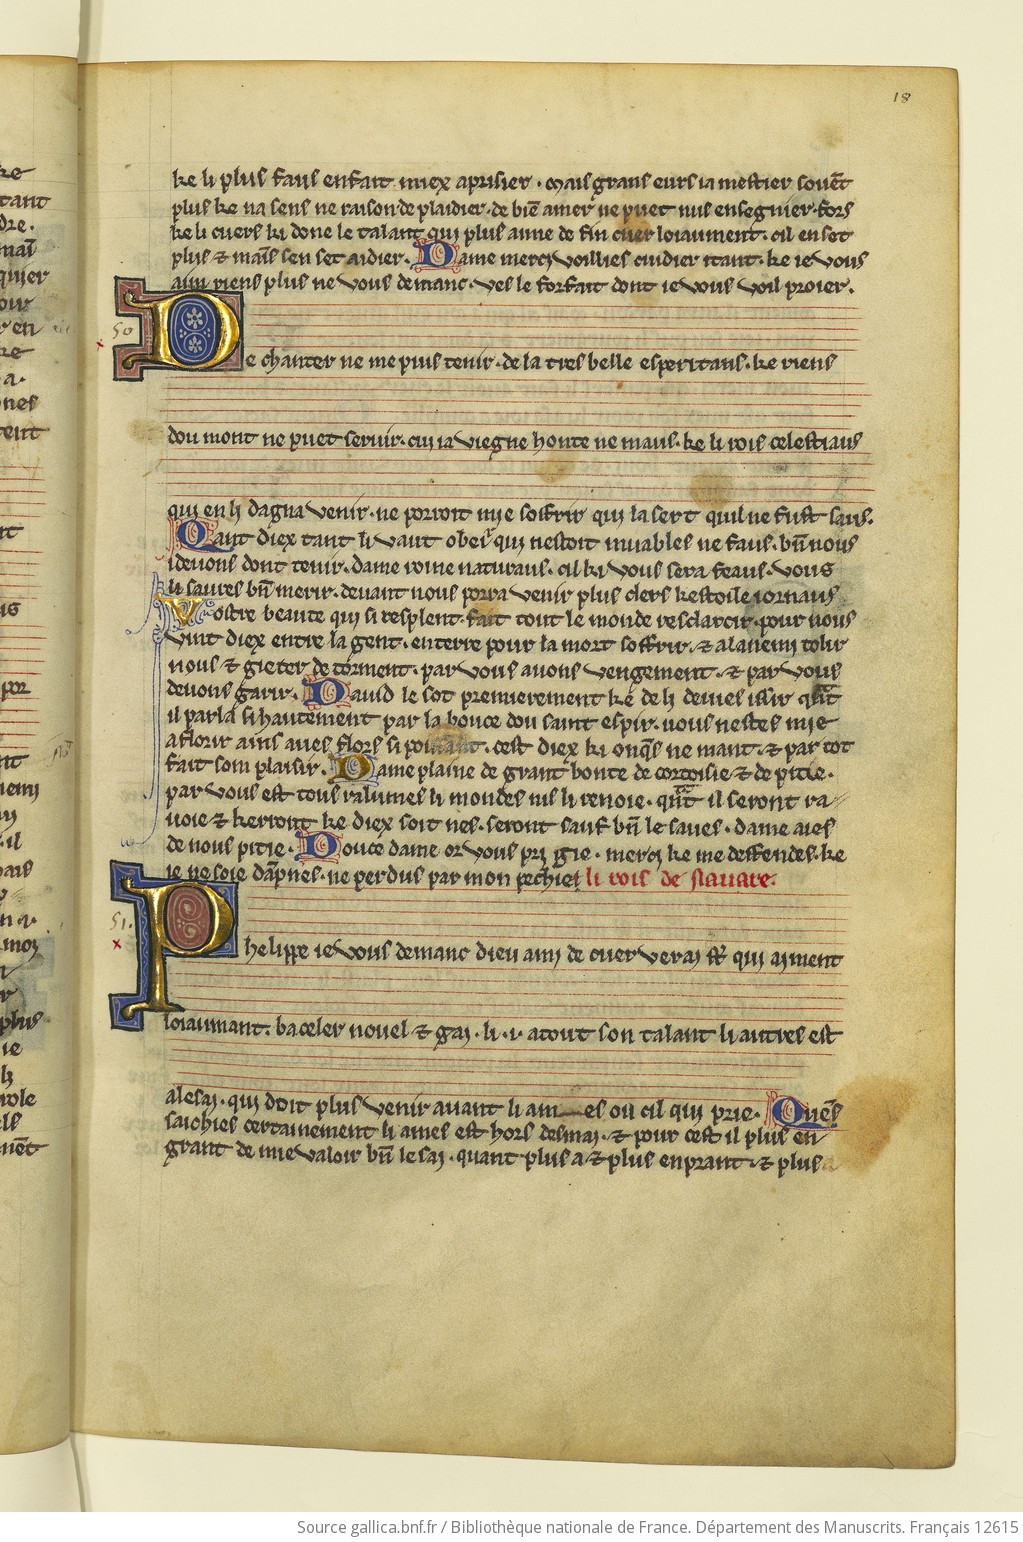 18
ke li plus saus enfait miex aprisier · mais grans eurs ia mestier souēt
plus ke na sens ne raison de plaidier · de biē amer ne puet nus ensegnier · fors
ke li cuers ki done le talant qui plus aime de fin cuer loiaument · cil en set
plus ⁊ mais sen set aidier · Dame mercy voillies cuidier itant · ke ie vous
aim riens plus ne vous demanc · ves le forfait dont ie vous voil proier ·
50
De chanter ne me puis tenir · de la tres belle esperitaus · ke riens
dou mont ne puet seruir · cui ia viegne honte ne maus · ke li rois celestiaus
qui en li dagna venir · ne porroit mie soffrir qui la sert quil ne fust saus ·
Qant diex tant li vaut obeir qui nestoit muables ne faus · bn̄ nous
i deuons dont tenir · dame roine naturaus · cil ki vous sera feaus · vous
li saures bn̄ merir · deuant nous porra venir plus clers kestoile iornaus
Vostre beaute qui si resplent · fait tout le monde resclarcir · por nous
vint diex entre la gent · en terre pour la mort soffrir · ⁊ a lanemi tolir
nous ⁊ gieter de torment · par vous auons vengement · ⁊ par vous
deuons garir · Dauid le sot premierement ke de li deuies issir qāt
il parla si hautement par la bouce dou saint espir · vous nestes mie
a florir ains aues flors si poissant · cest diex ki onqs ne mant · ⁊ par tot
fait som plaisir · Dame plaine de grant bonte de cortoisie ⁊ de pitie ·
par vous est tous ralumes li mondes nis li renoie · qāt il seront ra
uoie ⁊ kerront ke diex soit nes · seront sauf bn̄ le saues · dame aies
de nous pitie · Douce dame or vous pri gie · merci ke me deffendes · ke
ie ne soie dāpnes · ne perdus par mon pechiet li rois de nauare ·
51 ·
Phelippe ie vous demanc dieu ami de cuer verai se qui aiment
loiaumant · baceler nouel ⁊ gai · li · i · a tout son talant li autres est
alesai · qui doit plus venir auant li am es ou cil qui prie · Quēs
saichies certainement li ames est hors desmai · ⁊ pour cest il plus en
grant de mie valoir bn̄ le sai · quant plus a ⁊ plus enprant · ⁊ plus
Source gallica.bnf.fr / Bibliothèque nationale de France. Département des Manuscrits. Français 12615